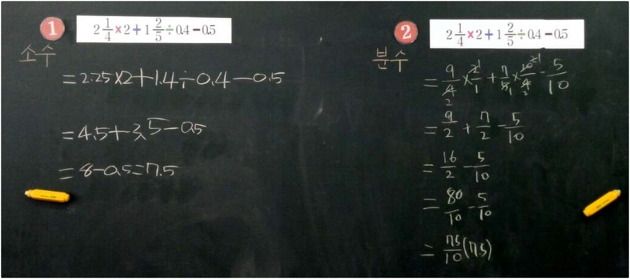 1
2 1/4 × 2 + 1 2/5 ÷ 0.4 - 0.5
소수
= 2.25×2+1.4÷0.4-0.5
= 4.5+3.5-0.5
= 8-0.5=7.5
2
2 1/4 × 2 + 1 2/5 ÷ 0.4 - 0.5
분수
= 9/4 × 2/1 + 7/5 × 10/4 - 5/10
= 9/2 + 7/2 - 5/10
= 16/2 - 5/10
= 80/10 - 5/10
= 75/10 (7.5)